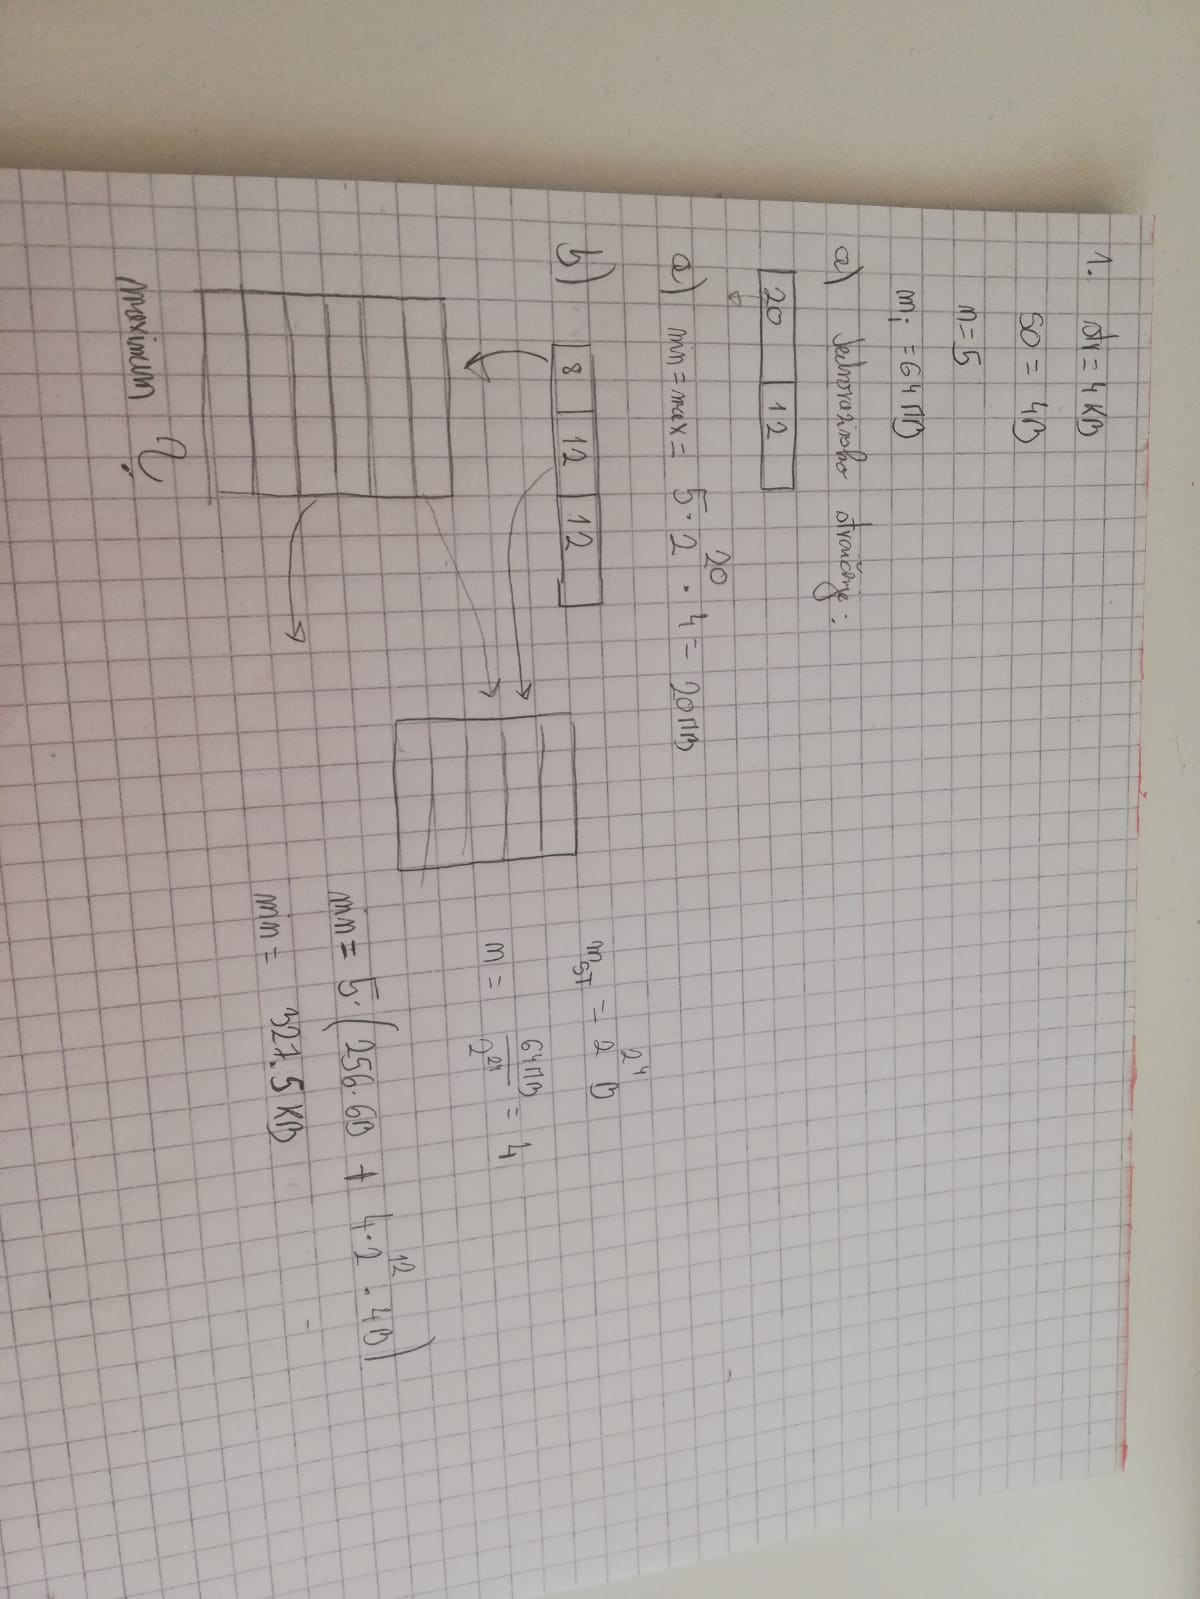 1. str = 4 KB
so = 4B
n = 5
mᵢ = 64 MB
a) Jednorazinsko straničenje:
20 | 12
a) min = max = 5 · 2²⁰ · 4 = 20 MB
b) 8 | 12 | 12
m_ST = 2²⁴ B
m = 64MB / 2²⁴ = 4
min = 5 · (256 · 6B + 4 · 2¹² · 4B)
min = 327,5 KB
maximum ?